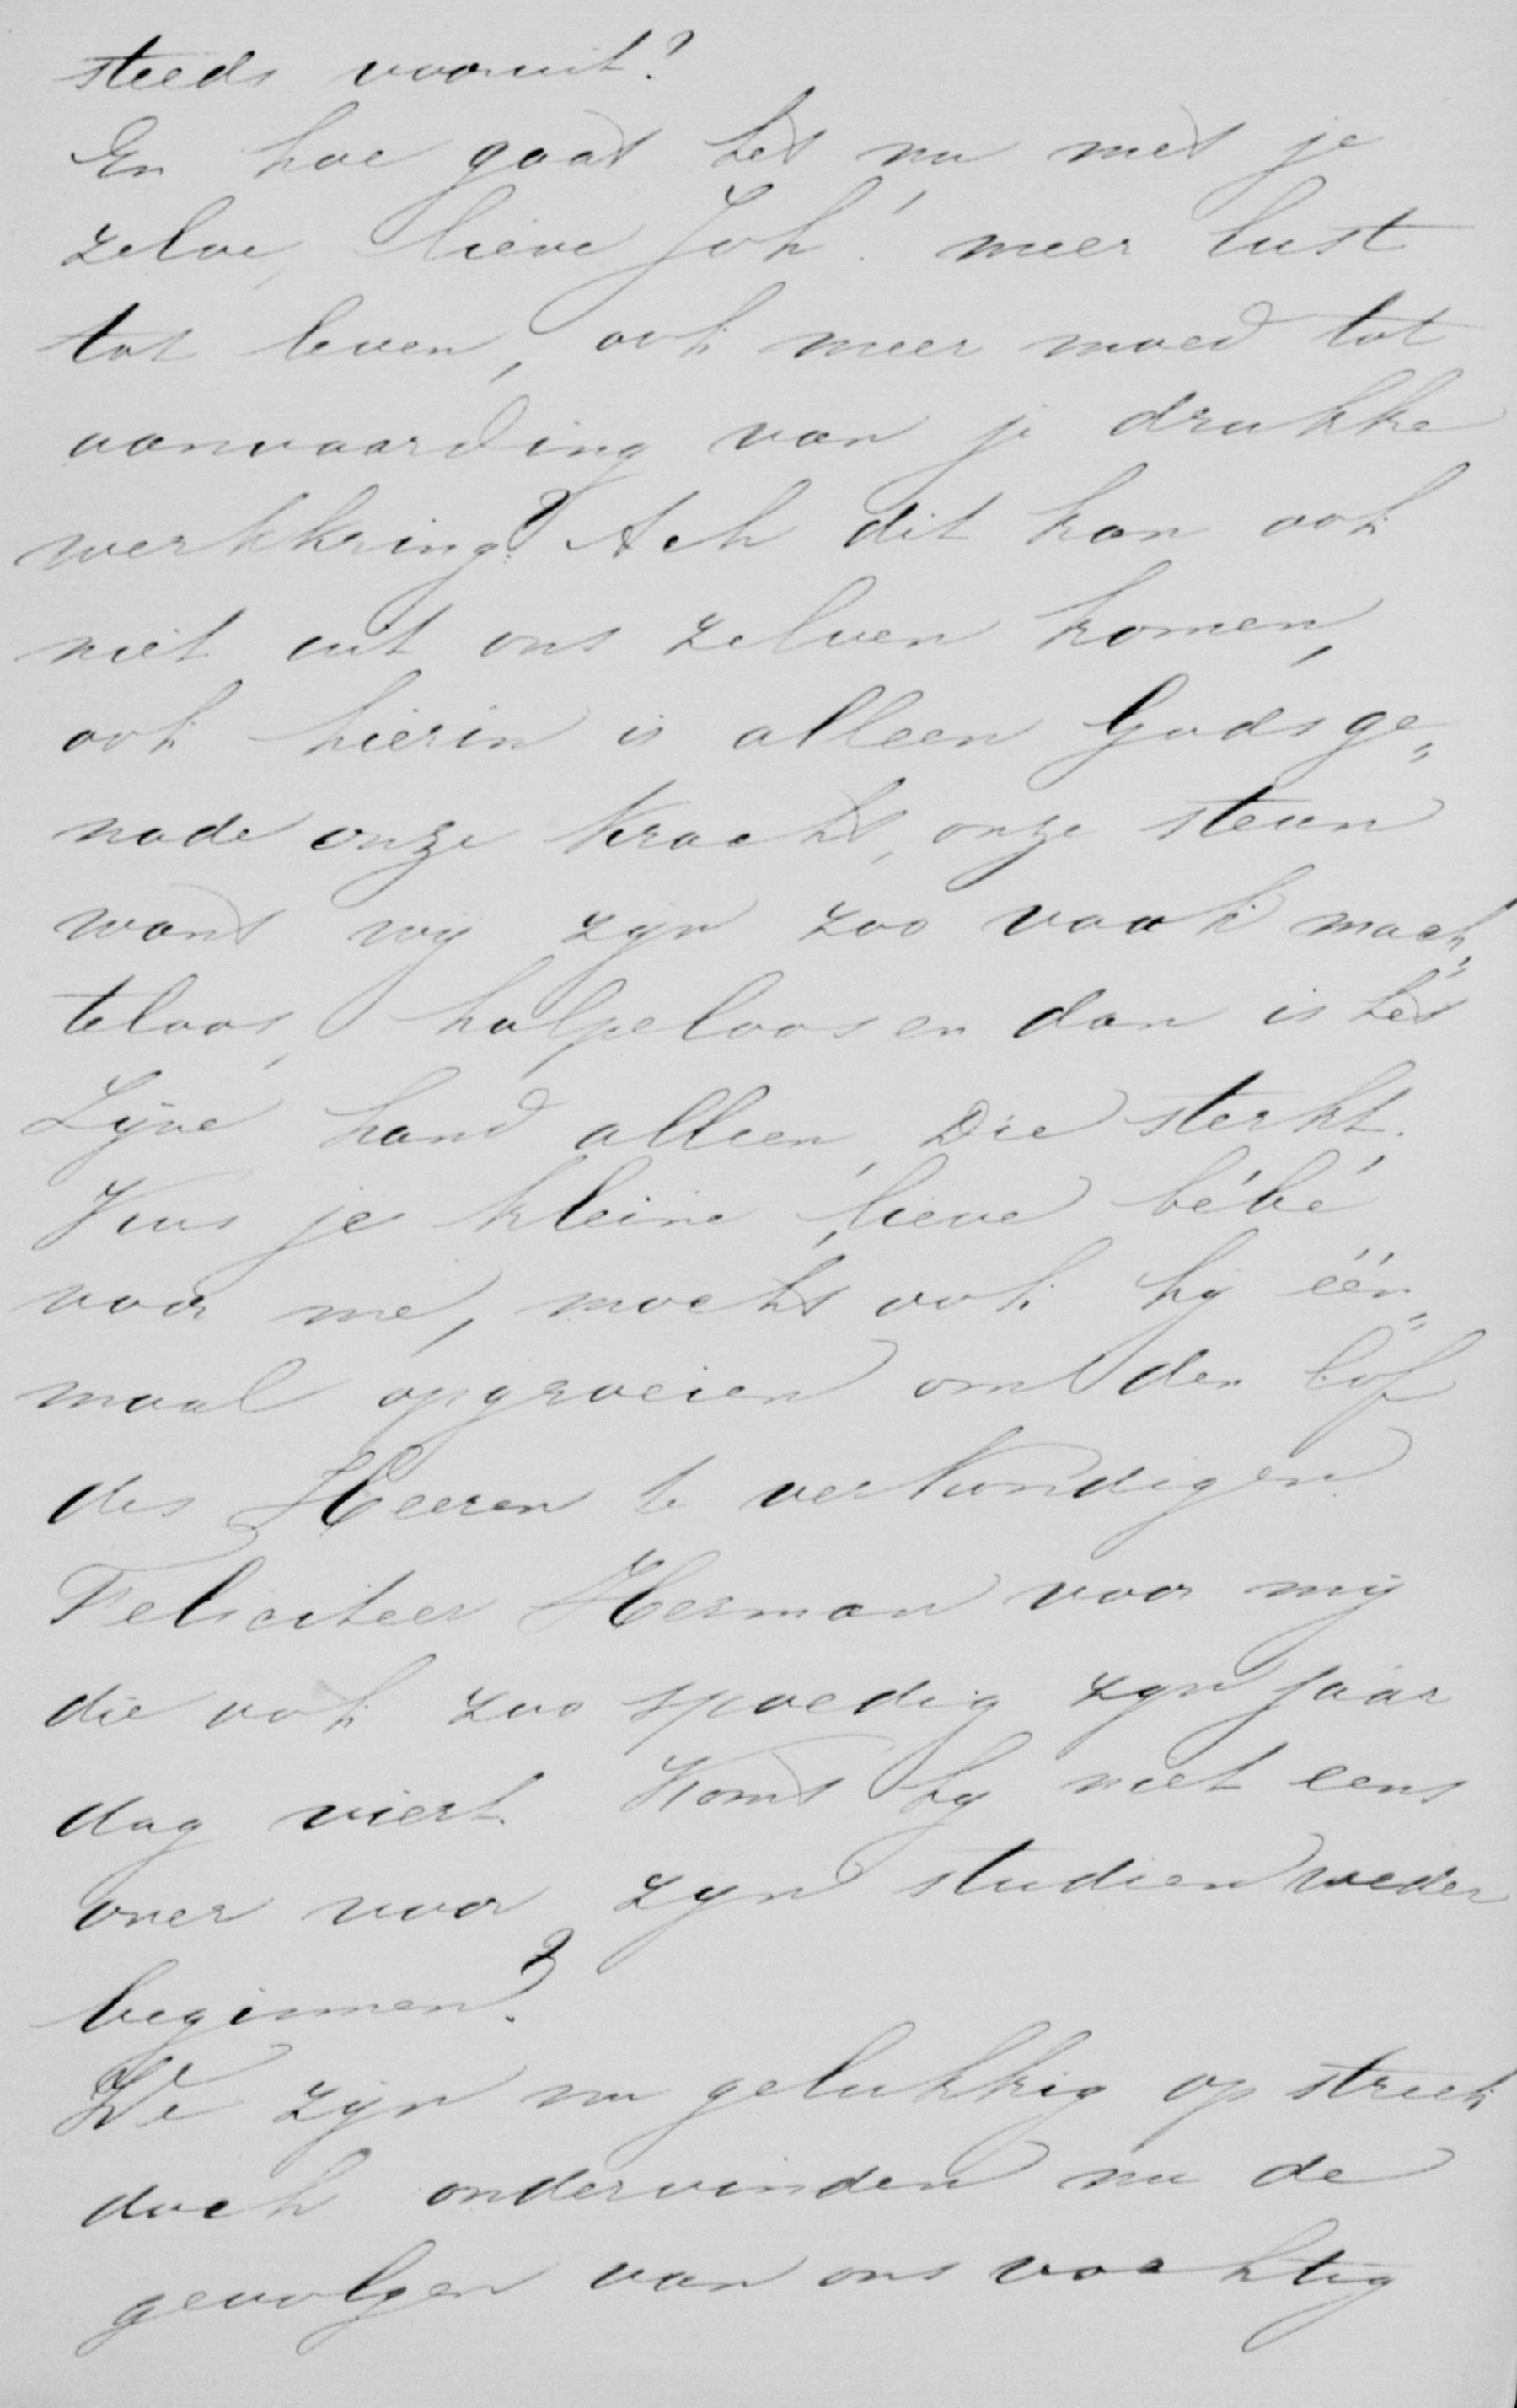 steeds vooruit?
En hoe gaat het nu met je
zelve, lieve Joh! meer lust
tot leven, ook meer moed tot
aanvaarding van je drukke
werkkring? Ach dit kan ook
niet uit ons zelven komen,
ook hierin is alleen Gods ge„
nade onze kracht, onze steun
want wij zijn zoo vaak mach„
teloos, hulpeloos en dan is het
Zijne hand alleen, Die sterkt.
Kus je kleine, lieve bébé
voor me, mocht ook hij één„
maal opgroeien om den lof
des Heeren te verkondigen.
Feliciteer Herman voor mij
die ook zoo spoedig zijn jaar
dag viert. Komt hij niet eens
over voor zijn studien weder
beginnen?
We zijn nu gelukkig op streek
doch ondervinden nu de
gevolgen van ons vochtig